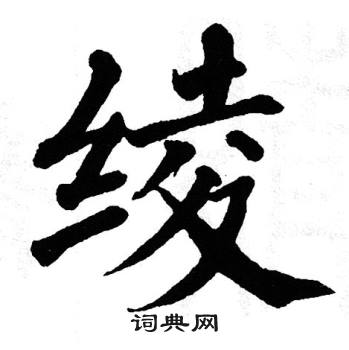 绫
词典网